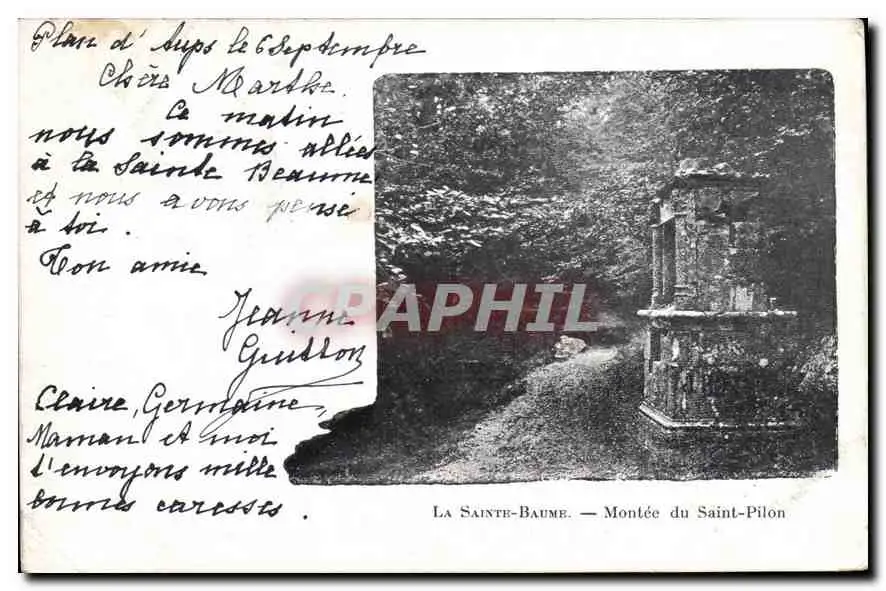 Plan d'Aups le 6 Septembre
Chère Marthe.
Ce matin
nous sommes allées
à la Sainte Beaume
et nous avons pensé
à toi.
Ton amie
Jeanne
Guitton
Claire, Germaine,
Maman et moi
t'envoyons mille
bonnes caresses.
CPAPHIL
LA SAINTE-BAUME. — Montée du Saint-Pilon